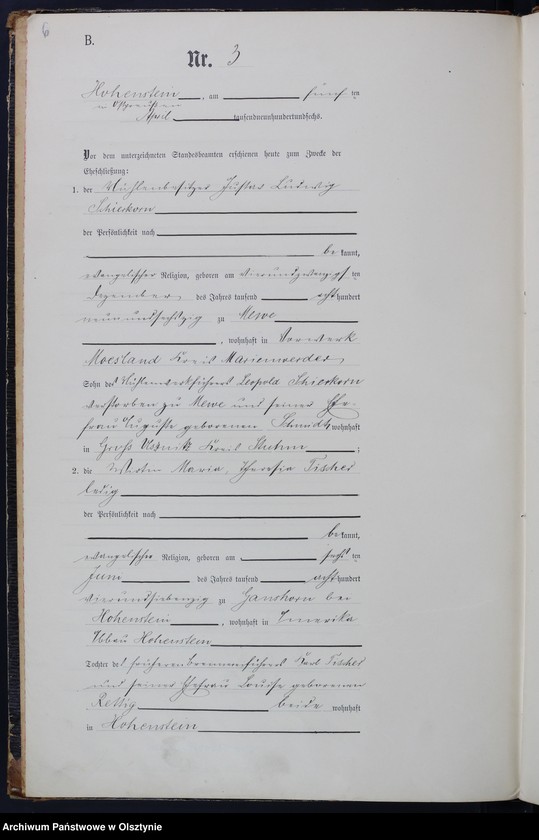 6
B.
Nr. 3
Hohenstein, am fünf ten
in Ostpreußen
April tausendneunhundertundsechs.
Vor dem unterzeichneten Standesbeamten erschienen heute zum Zwecke der
Eheschließung:
1. der Mühlenbesitzer Gustav Ludwig
Schieskorn
der Persönlichkeit nach
be kannt,
evangelischer Religion, geboren am vierundzwanzigsten
Dezember des Jahres tausend acht hundert
neunundsechszig zu Mewe
, wohnhaft in Vorwerk
Moesland Kreis Marienwerder
Sohn des Leopold Schieskorn
verstorben zu Mewe und seiner Ehe-
frau Auguste geborenen Schmidt, wohnhaft
in Groß Kreis Stuhm ;
2. die Maria Theresia Fischer
ledig
der Persönlichkeit nach
be kannt,
evangelischer Religion, geboren am sechs ten
Juni des Jahres tausend acht hundert
vierundsiebenzig zu Ganshorn bei
Hohenstein, wohnhaft in Amerika
Abbau Hohenstein
Tochter des früheren Karl Fischer
und seiner Ehefrau Louise geborenen
Rettig beide wohnhaft
in Hohenstein
Archiwum Państwowe w Olsztynie